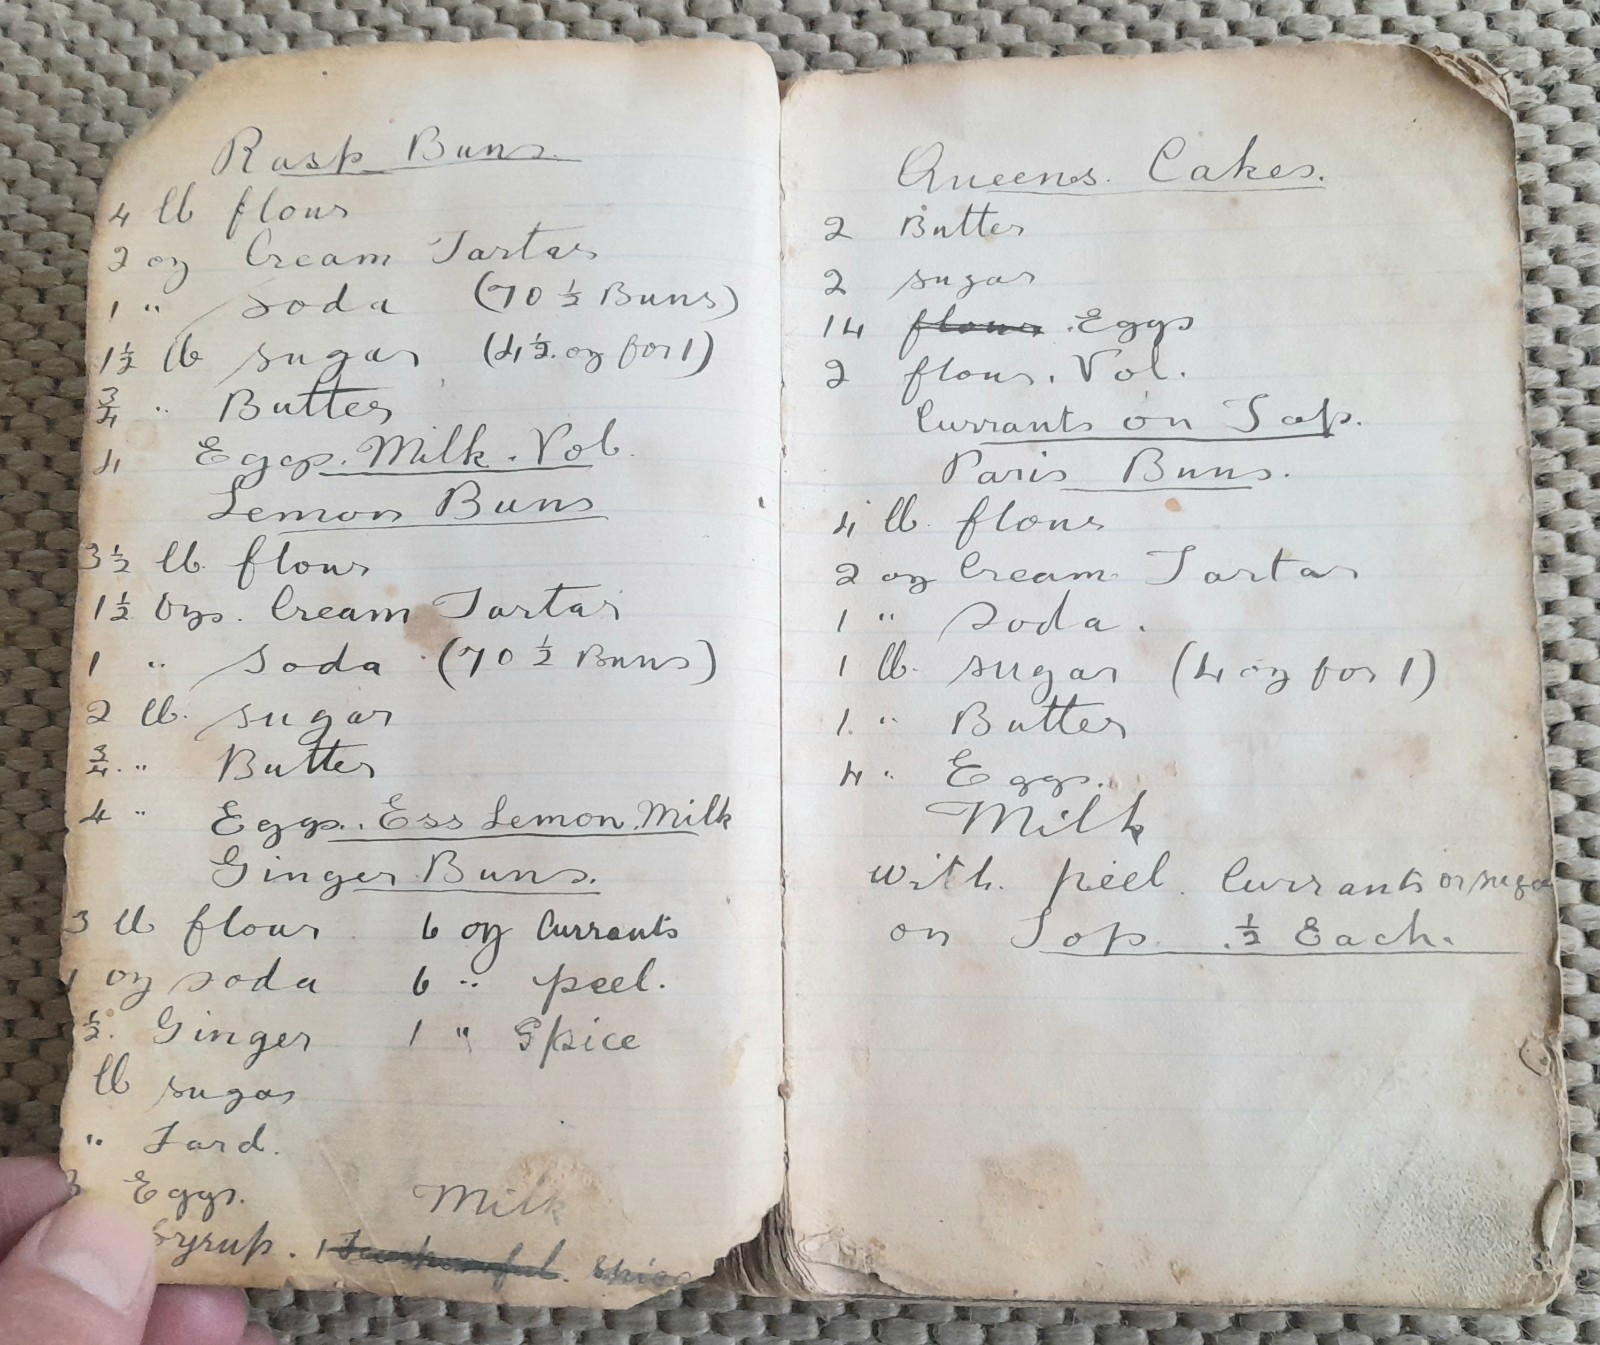 Rasp Buns.
4 lb flour
2 oz Cream Tartar
1 " Soda (70 ½ Buns)
1½ lb sugar (4½ oz for 1)
¾ " Butter
4 Eggs. Milk. Vol.
Lemon Buns
3½ lb. flour
1½ ozs. Cream Tartar
1 " Soda (70 ½ Buns)
2 lb. sugar
¾ " Butter
4 " Eggs. Ess Lemon. Milk
Ginger Buns.
3 lb flour 6 oz Currants
1 oz soda 6 " peel.
½. Ginger 1 " Spice
lb sugar
" Lard.
3 Eggs. Milk
Syrup. 1 Spice
Queens. Cakes.
2 Butter
2 sugar
14 flour .Eggs
2 flour. Vol.
Currants on Top.
Paris Buns.
4 lb. flour
2 oz Cream Tartar
1 " soda.
1 lb. sugar (4 oz for 1)
1. " Butter
4 " Eggs.
Milk
with. peel. Currants or sugar
on Top. ½ Each.